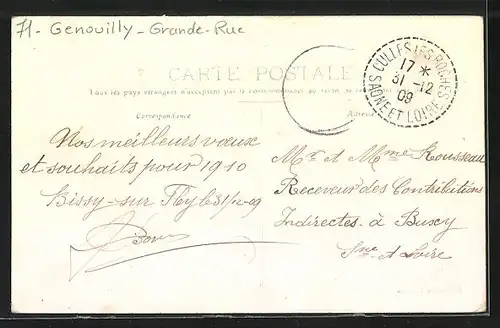 71 - Genouilly - Grande-Rue
CULLES LES ROCHES
17 *
31 -12
09
SAONE ET LOIRE
CARTE POSTALE
Tous les pays étrangers n'acceptent pas la correspondance au
Correspondance
Nos meilleurs vœux
et souhaits pour 1910
Bissy-sur Fley le 31/12-09
Mr et Mme Rousseau
Receveur des Contributions
Indirectes à Buxy
Sne et Loire